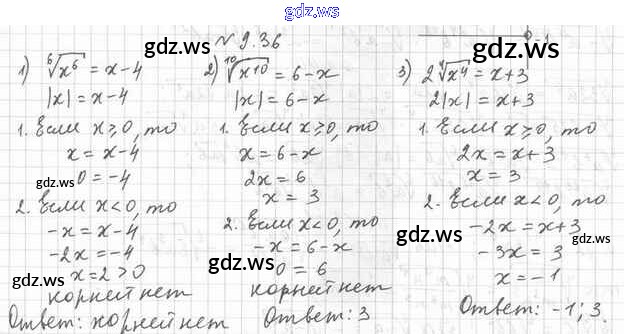 gdz.ws
№ 9.36
1) ⁶√x⁶ = x - 4
|x| = x - 4
1. Если x ≥ 0, то
x = x - 4
0 = -4
2. Если x < 0, то
-x = x - 4
-2x = -4
x = 2 > 0
корней нет
Ответ: корней нет
2) ¹⁰√x¹⁰ = 6 - x
|x| = 6 - x
1. Если x ≥ 0, то
x = 6 - x
2x = 6
x = 3
2. Если x < 0, то
-x = 6 - x
0 = 6
корней нет
Ответ: 3
3) 2⁴√x⁴ = x + 3
2|x| = x + 3
1. Если x ≥ 0, то
2x = x + 3
x = 3
2. Если x < 0, то
-2x = x + 3
-3x = 3
x = -1
Ответ: -1; 3.
-1
gdz.ws
gdz.ws
gdz.ws
gdz.ws
gdz.ws
gdz.ws
gdz.ws
gdz.ws
gdz.ws